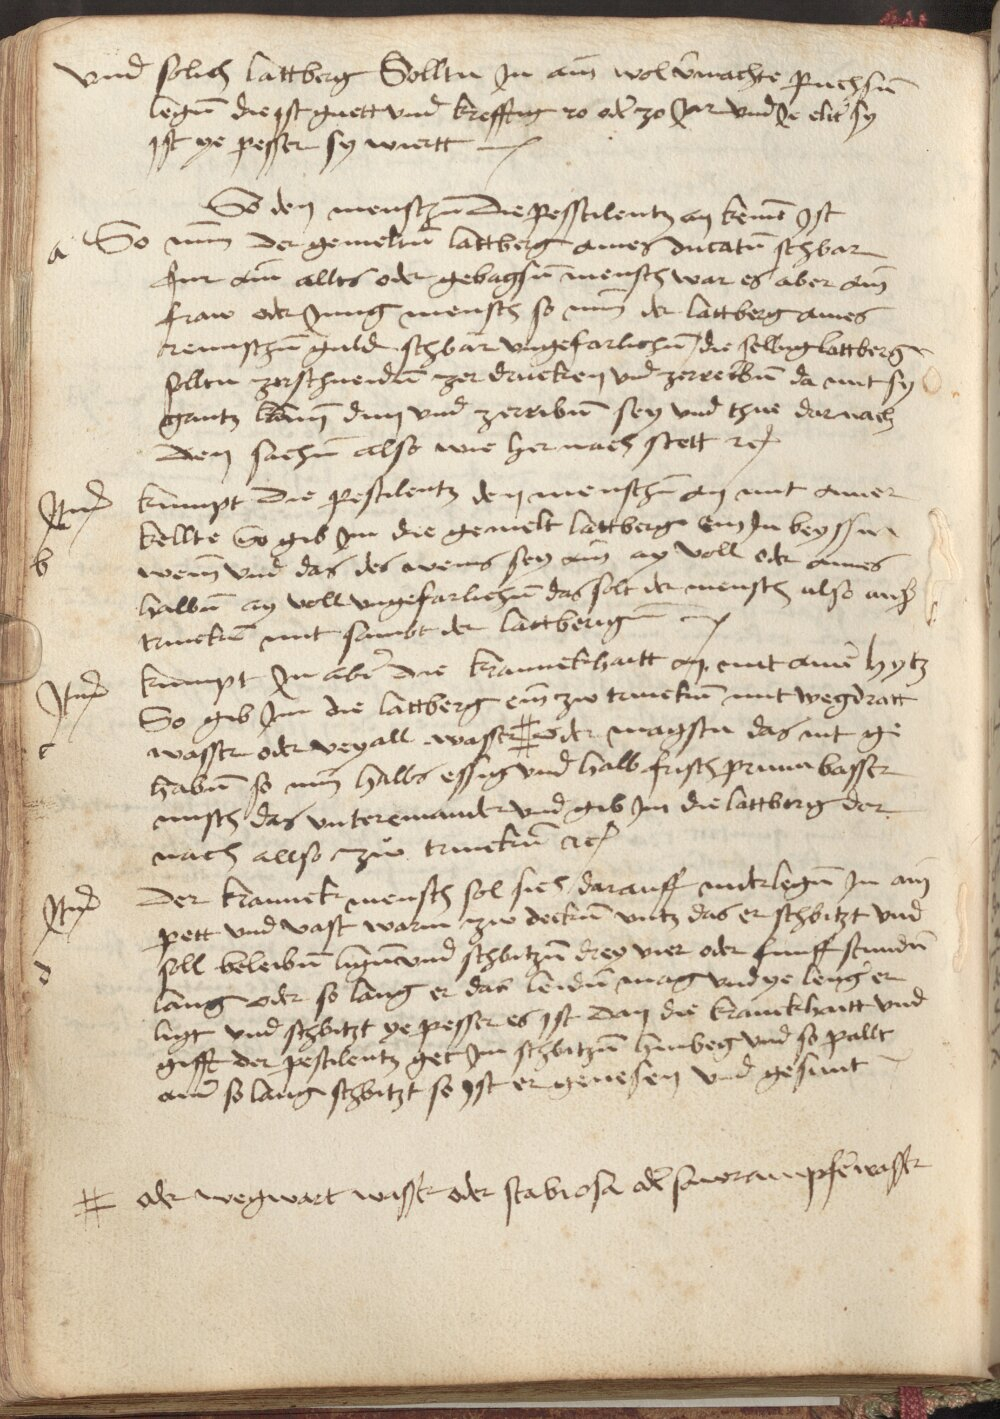 Und solich lattberg Solltu In ain wol v̄machte puchssn̄
legn̄ die ist guett und krefftig 20 oder 30 Jar und Je elter sy
Ist ye pesser sy wiertt
So den menschn̄ die pestilentz an kemēt Ist
a So nim̄ der gemeltn̄ lattberg aines ducatn̄ schbar
fur ain alltes oder gebagsn̄ mensch war es aber ain̄
fraw oder Jung mensch so nim̄ der lattberg aines
reinischn̄ guld schbar ungefarlichn̄ / die selbig lattberg
solltu zerschneidn̄ zerdrucken und zerreibn̄ da mit sy
gantz klain̄ dun und zerribn̄ sey und thue darnach
den sachn̄ also wie her nach stett rc
Jtem kumpt die pestilentz den menschn̄ an mit ainer
b kellte So gib Im die gemelt lattberg ein In beyssn
wein̄ und das des weins sey ain ay voll oder aines
halbn̄ ay voll ungefarlichn̄ das solt der mensch also auß
trinckn̄ mit sambt der lattberig
Jtem kumpt In aber die kranneckhaitt an mit ainer hytz
c So gib Im die lattberg ein zw trinckn̄ mit wegdratt
wasser oder veyall wasser # oder magstu das nit ge
habn̄ so nim̄ halbs essig und halb frisch prunnbasser
misch das untereinander und gib Im die lattberg dar
nach allso zw trinckn̄ rc
Jtem Der kranneck mensch sol sich darauff niderlegn̄ In ain̄
d pett und vast warm zw deckn̄ untz das er schbitzt und
soll beleibn̄ lign̄ und schbitzn̄ drey vier oder funff stundn̄
lang oder so lang er das leidn̄ mag und ye lenger er
ligt und schbitzt ye pesser es Ist dan die kranckhaitt und
gifft der pestilentz get Im schbitzn̄ hinbeg und so pallt
ainer so lang schbitzt so Ist er genesen und gesunt
# oder wegwart wasser oder scabiosa oder saworampferwasser